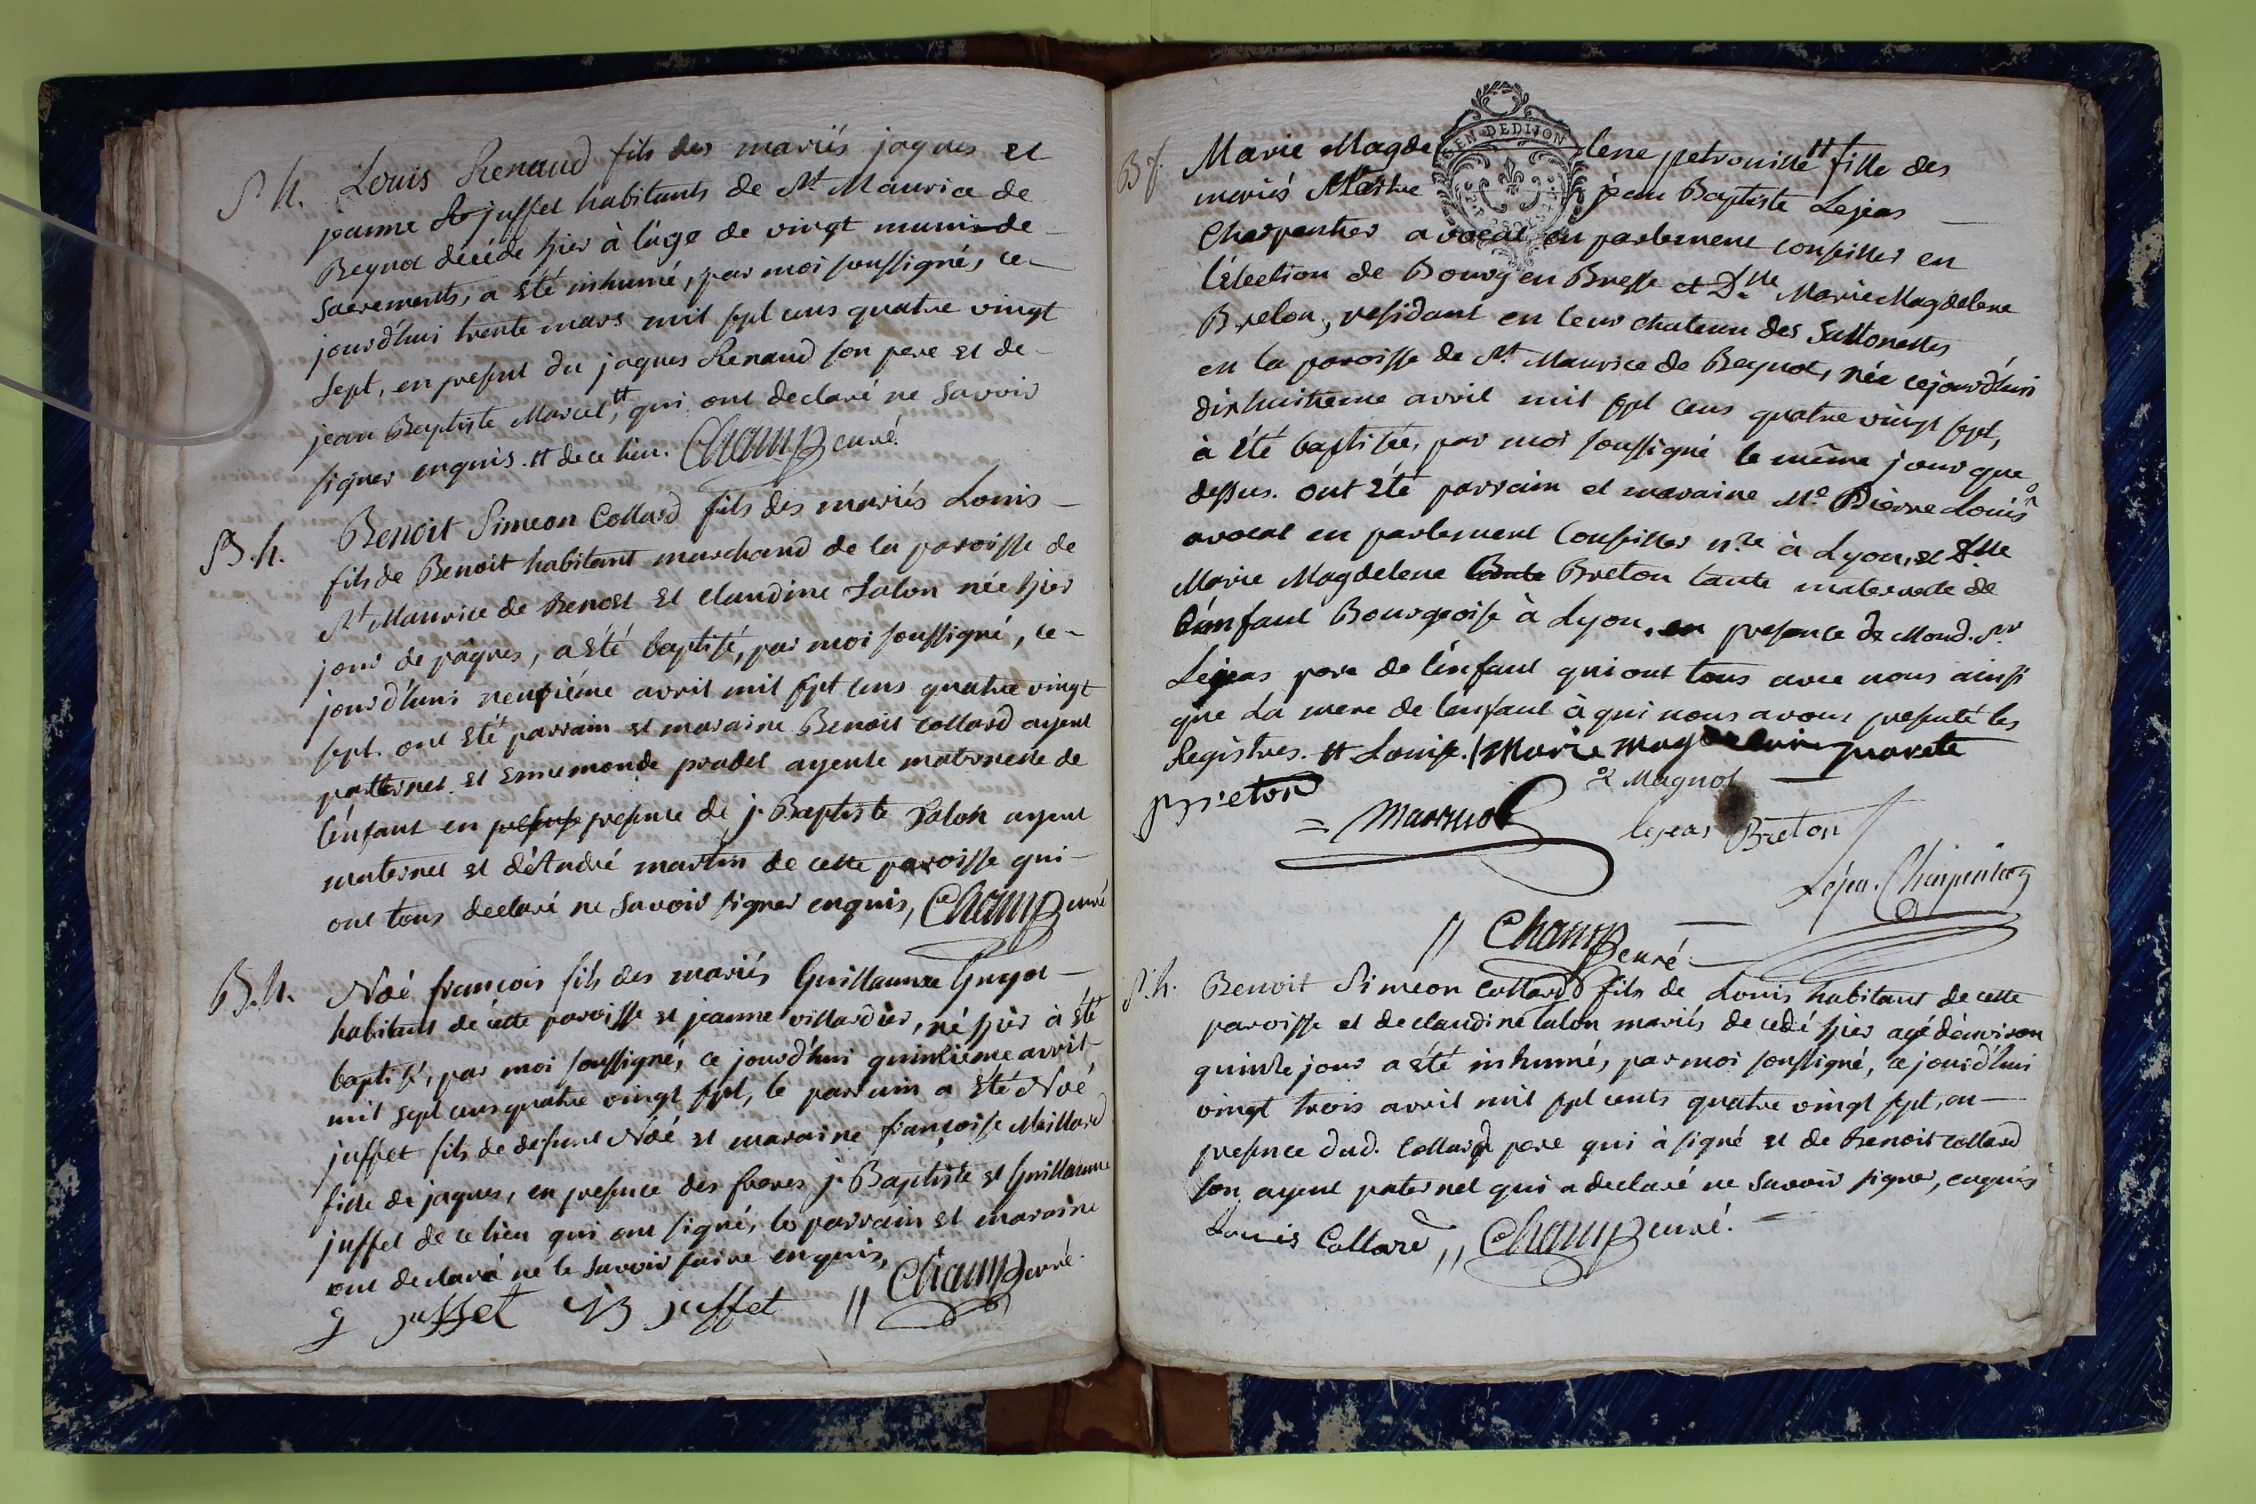 S h. Louis Renaud fils des mariés jaques et
jeanne juffet habitants de St Maurice de
Beynot décédé hier à l'age de vingt muni de
sacrements, a été inhumé, par moi soussigné, ce
jourd'hui trente mars mil sept cens quatre vingt
sept, en presence du jaques Renaud son pere et de
jean Baptiste Marcel H qui ont declaré ne savoir
signer enquis. H de ce lieu. Champ curé.
B. h. Benoit Simeon Collard fils des mariés Louis
fils de Benoit habitant marchand de la paroisse de
St Maurice de Benost et claudine Talon née hier
jour de pâques, a été baptisé, par moi soussigné, ce
jourd'hui neuviéme avril mil sept cens quatre vingt
sept. ont été parrain et maraine Benoit Collard ayeul
patternel et Ennemonde pradel ayeule maternelle de
l'enfant en presence de j. Baptiste Talon ayeul
maternel et d'André martin de cette paroisse qui
ont tous declaré ne savoir signer enquis, Champ curé
B. h. Noé françois fils des mariés Guillaume Guyot
habitants de cette paroisse et jeanne villardier, né hier à été
baptisé, par moi soussigné, ce jourd'hui quinziéme avril
mil sept cens quatre vingt sept, le parrain a été Noé
juffet fils de defunt Noé et maraine françoise Maillard
fille de jaques, en presence des freres j. Baptiste et Guillaume
juffet de ce lieu qui ont signé, le parrain et maraine
ont declaré ne le savoir faire enquis,
g juffet JB juffet // Champ curé.
GEN. DE DIJON
B f. Marie Magdelene petronille H fille des
mariés Maitre jean Baptiste Lejeas
Charpentier avocat en parlement conseiller en
l'élection de Bourg en Bresse et Dlle Marie Magdelene
Breton, residant en leur chateau des Sattonettes
en la paroisse de St Maurice de Beynot, née cejourd'hui
dixhuitieme avril mil sept cens quatre vingt sept,
à été baptisée, par moi soussigné le même jour que
dessus. ont été parrain et maraine Me Pierre Louis
avocat en parlement Conseiller nre à Lyon, et Dlle
Marie Magdelene Breton tante maternelle de
l'enfant Bourgeoise à Lyon, en presence de Mond. Sr
Lejeas pere de l'enfant qui ont tous avec nous ainsi
que la mere de l'enfant à qui nous avons presenté les
Registres. H Louise. Marie
Breton
Magnol
= Magnol lejeas Breton
Lejeas Charpentier
// Champ curé.
S. h. Benoit Simeon Collard fils de Louis habitant de cette
paroisse et de claudine Talon mariés decedé hier agé d'environ
quinze jour a été inhumé, par moi soussigné, ce jourd'hui
vingt trois avril mil sept cents quatre vingt sept, en
presence dud. Collard pere qui à signé et de Benoit Collard
son ayeul paternel qui a declaré ne savoir signer, enquis
Louis Collard // Champ curé.